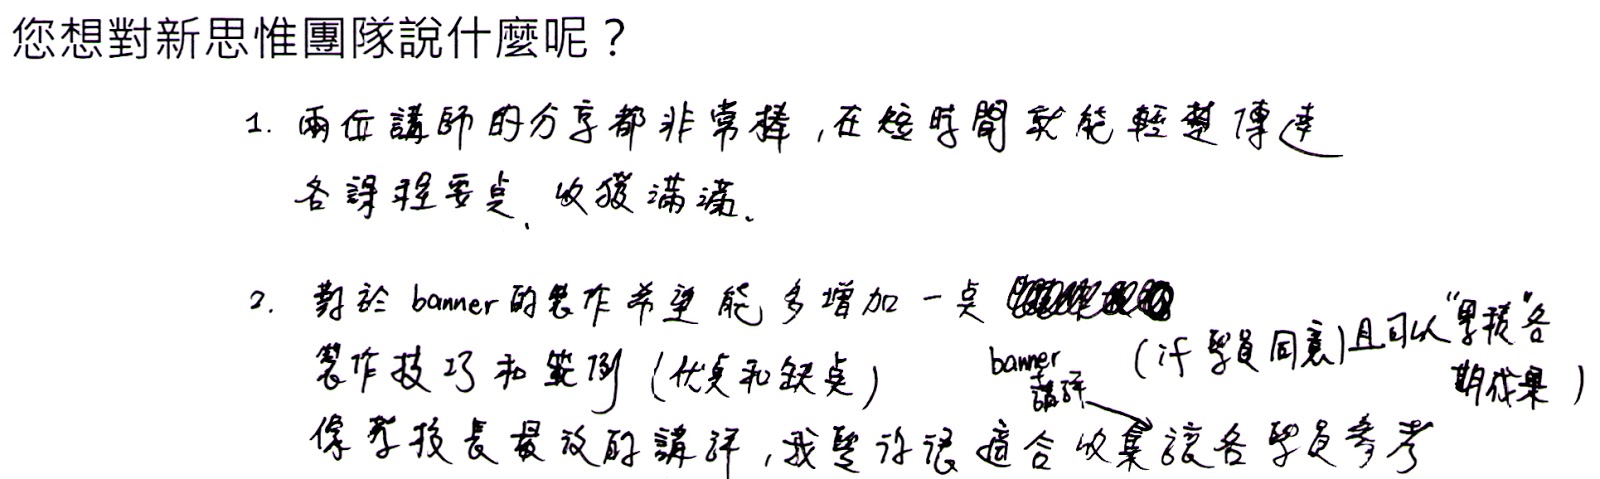 您想對新思惟團隊說什麼呢？
1. 兩位講師的分享都非常棒，在短時間就能輕楚傳達
各課程要点、收獲滿滿。
2. 對於 banner 的製作希望能多增加一点
製作技巧和範例 (优点和缺点)
banner + 講評 (徵學員同意) 且可以 "累積" 各期成果)
像蔡校長最後的講評，我覺得很適合收集讓各學員參考